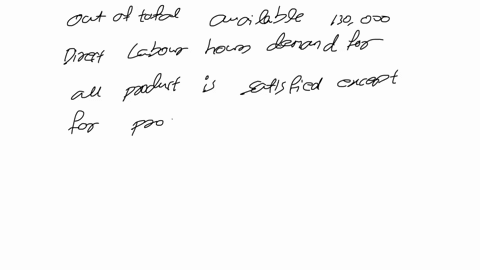 out of total available 130,000
Direct Labour hours demand for
all product is satisfied except
for pro